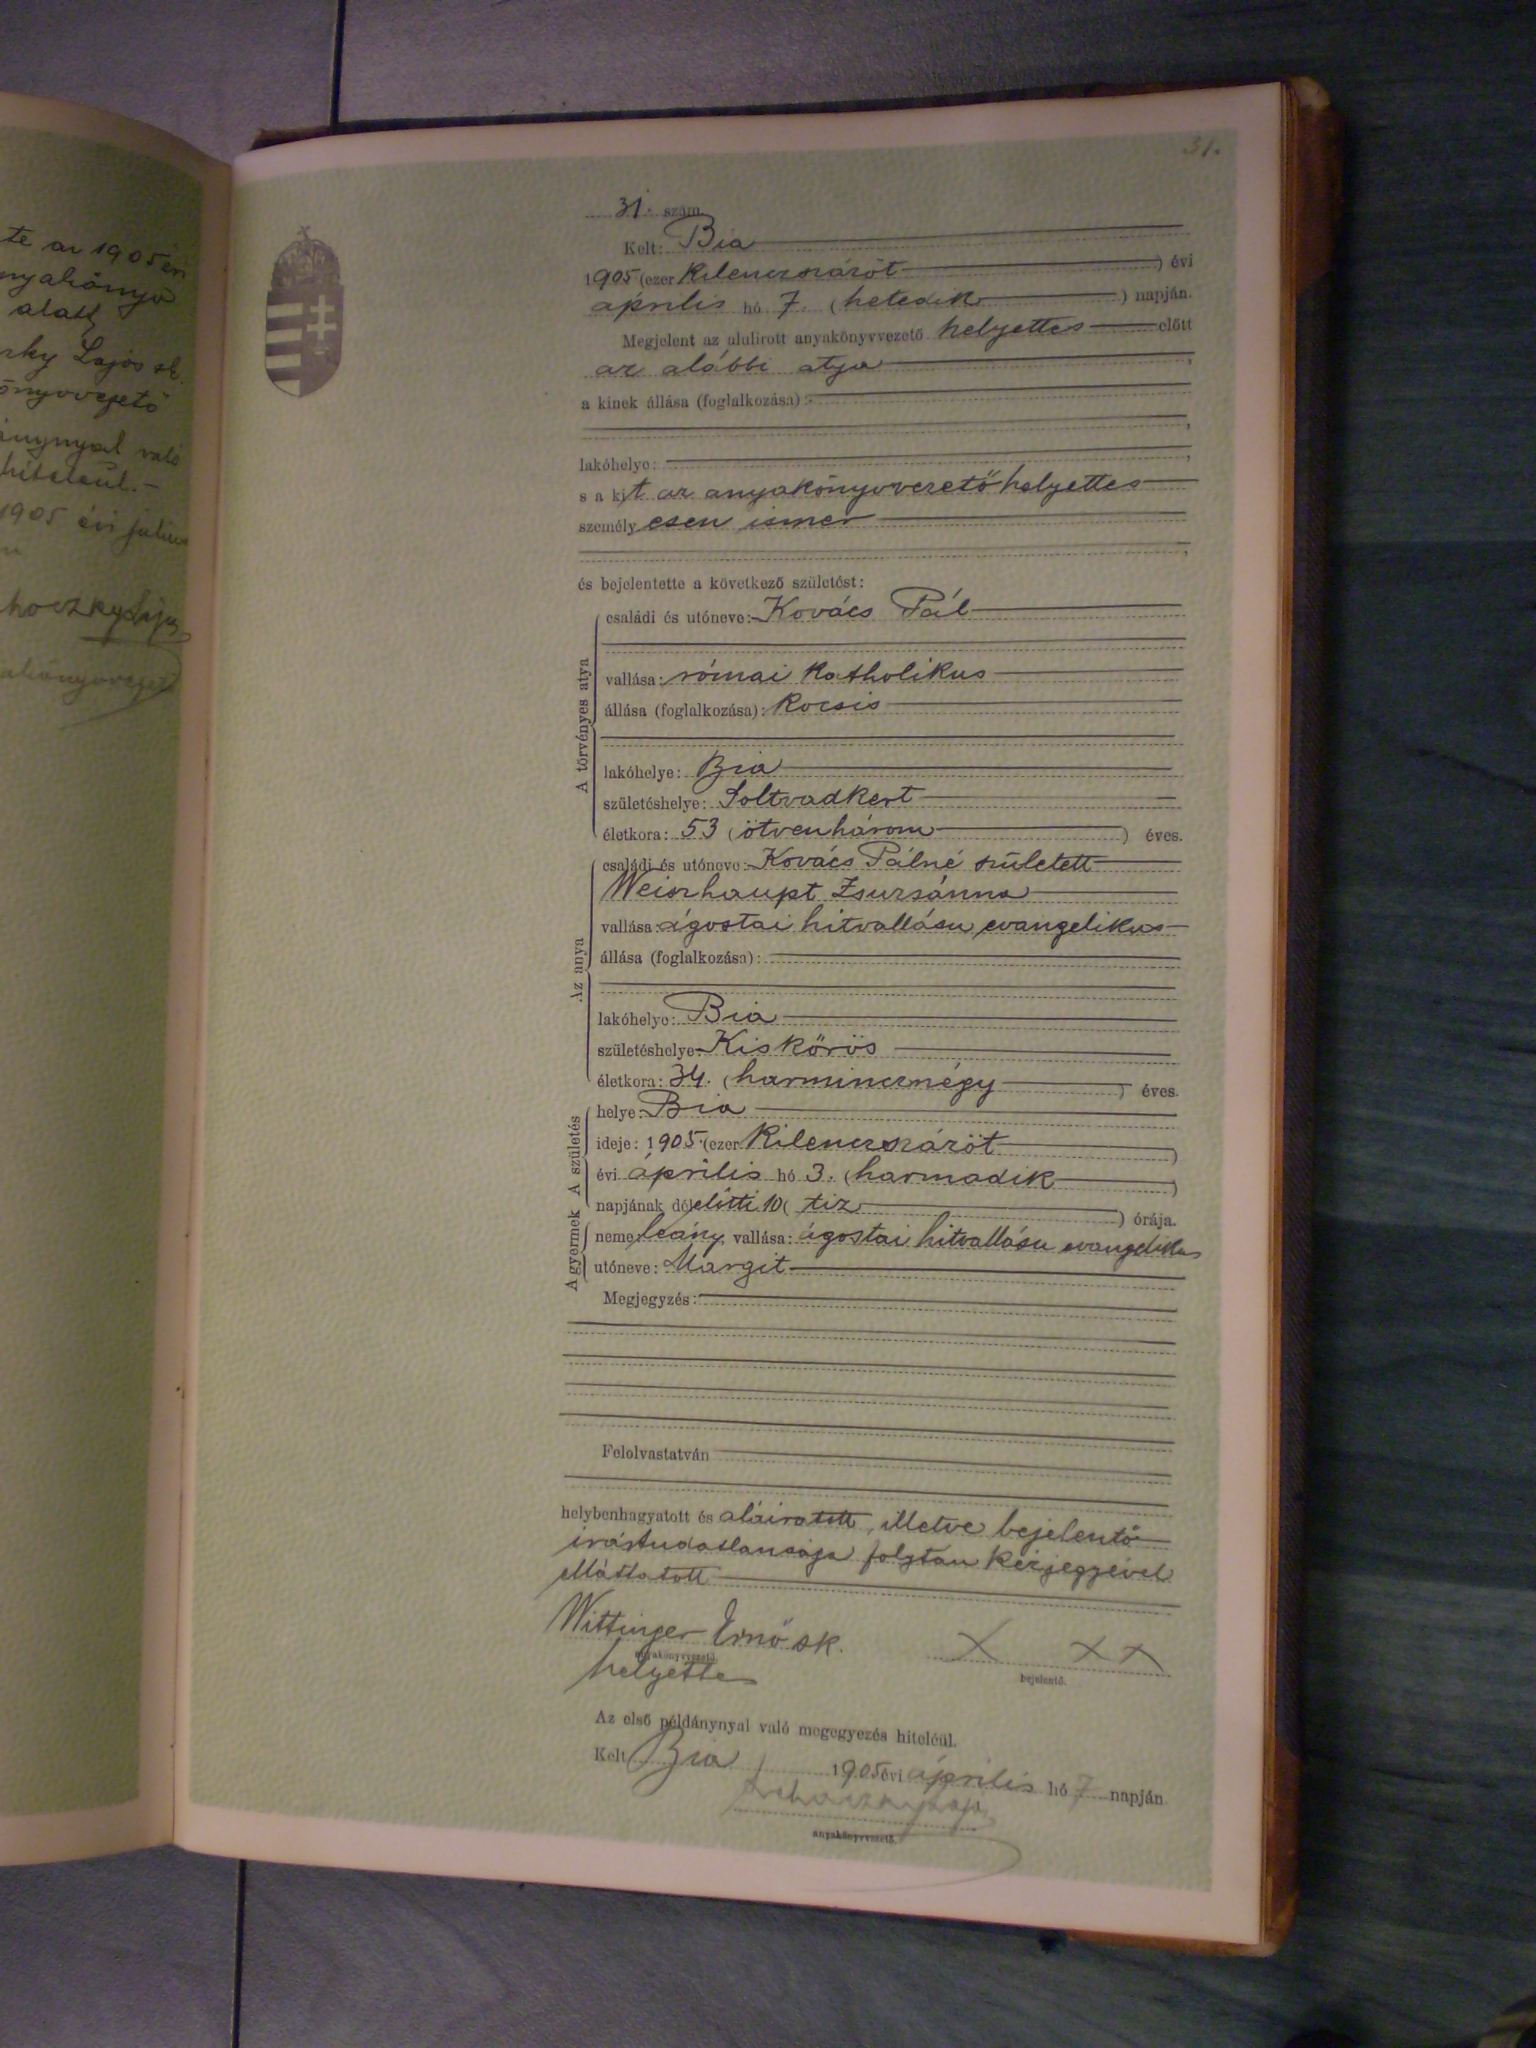 te az 1905 évi
alatt
Lajos sk.
önyvvezető
ánynyal való
hiteléül.-
1905 évi július
31.
31. szám.
Kelt: Bia
1905 (ezer kilenczszázöt) évi
április hó 7. (hetedik) napján.
Megjelent az alulirott anyakönyvvezető helyettes előtt
az alábbi atya,
a kinek állása (foglalkozása):
lakóhelye:
s a kit az anyakönyvvezető helyettes
személyesen ismer
és bejelentette a következő születést:
A törvényes atya
családi és utóneve: Kovács Pál
vallása: római katholikus
állása (foglalkozása): kocsis
lakóhelye: Bia
születéshelye: Soltvadkert
életkora: 53 (ötvenhárom) éves.
Az anya
családi és utóneve: Kovács Pálné született
Weiszhaupt Zsuzsánna
vallása: ágostai hitvallásu evangelikus
állása (foglalkozása):
lakóhelye: Bia
születéshelye: Kiskőrös
életkora: 34. (harmincznégy) éves.
A születés
helye: Bia
ideje: 1905. (ezer kilenczszázöt)
évi április hó 3. (harmadik)
napjának délelőtti 10 (tiz) órája.
A gyermek
neme: leány, vallása: ágostai hitvallásu evangelikus
utóneve: Margit
Megjegyzés:
Felolvastatván
helybenhagyatott és aláiratott, illetve bejelentő
irástudatlansága folytan kézjegyével
elláttatott
Wittinger Ernő sk. X XX
anyakönyvvezető. bejelentő.
helyettes
Az első példánynyal való megegyezés hiteléül.
Kelt Bia, 1905 évi április hó 7 napján
anyakönyvvezető.